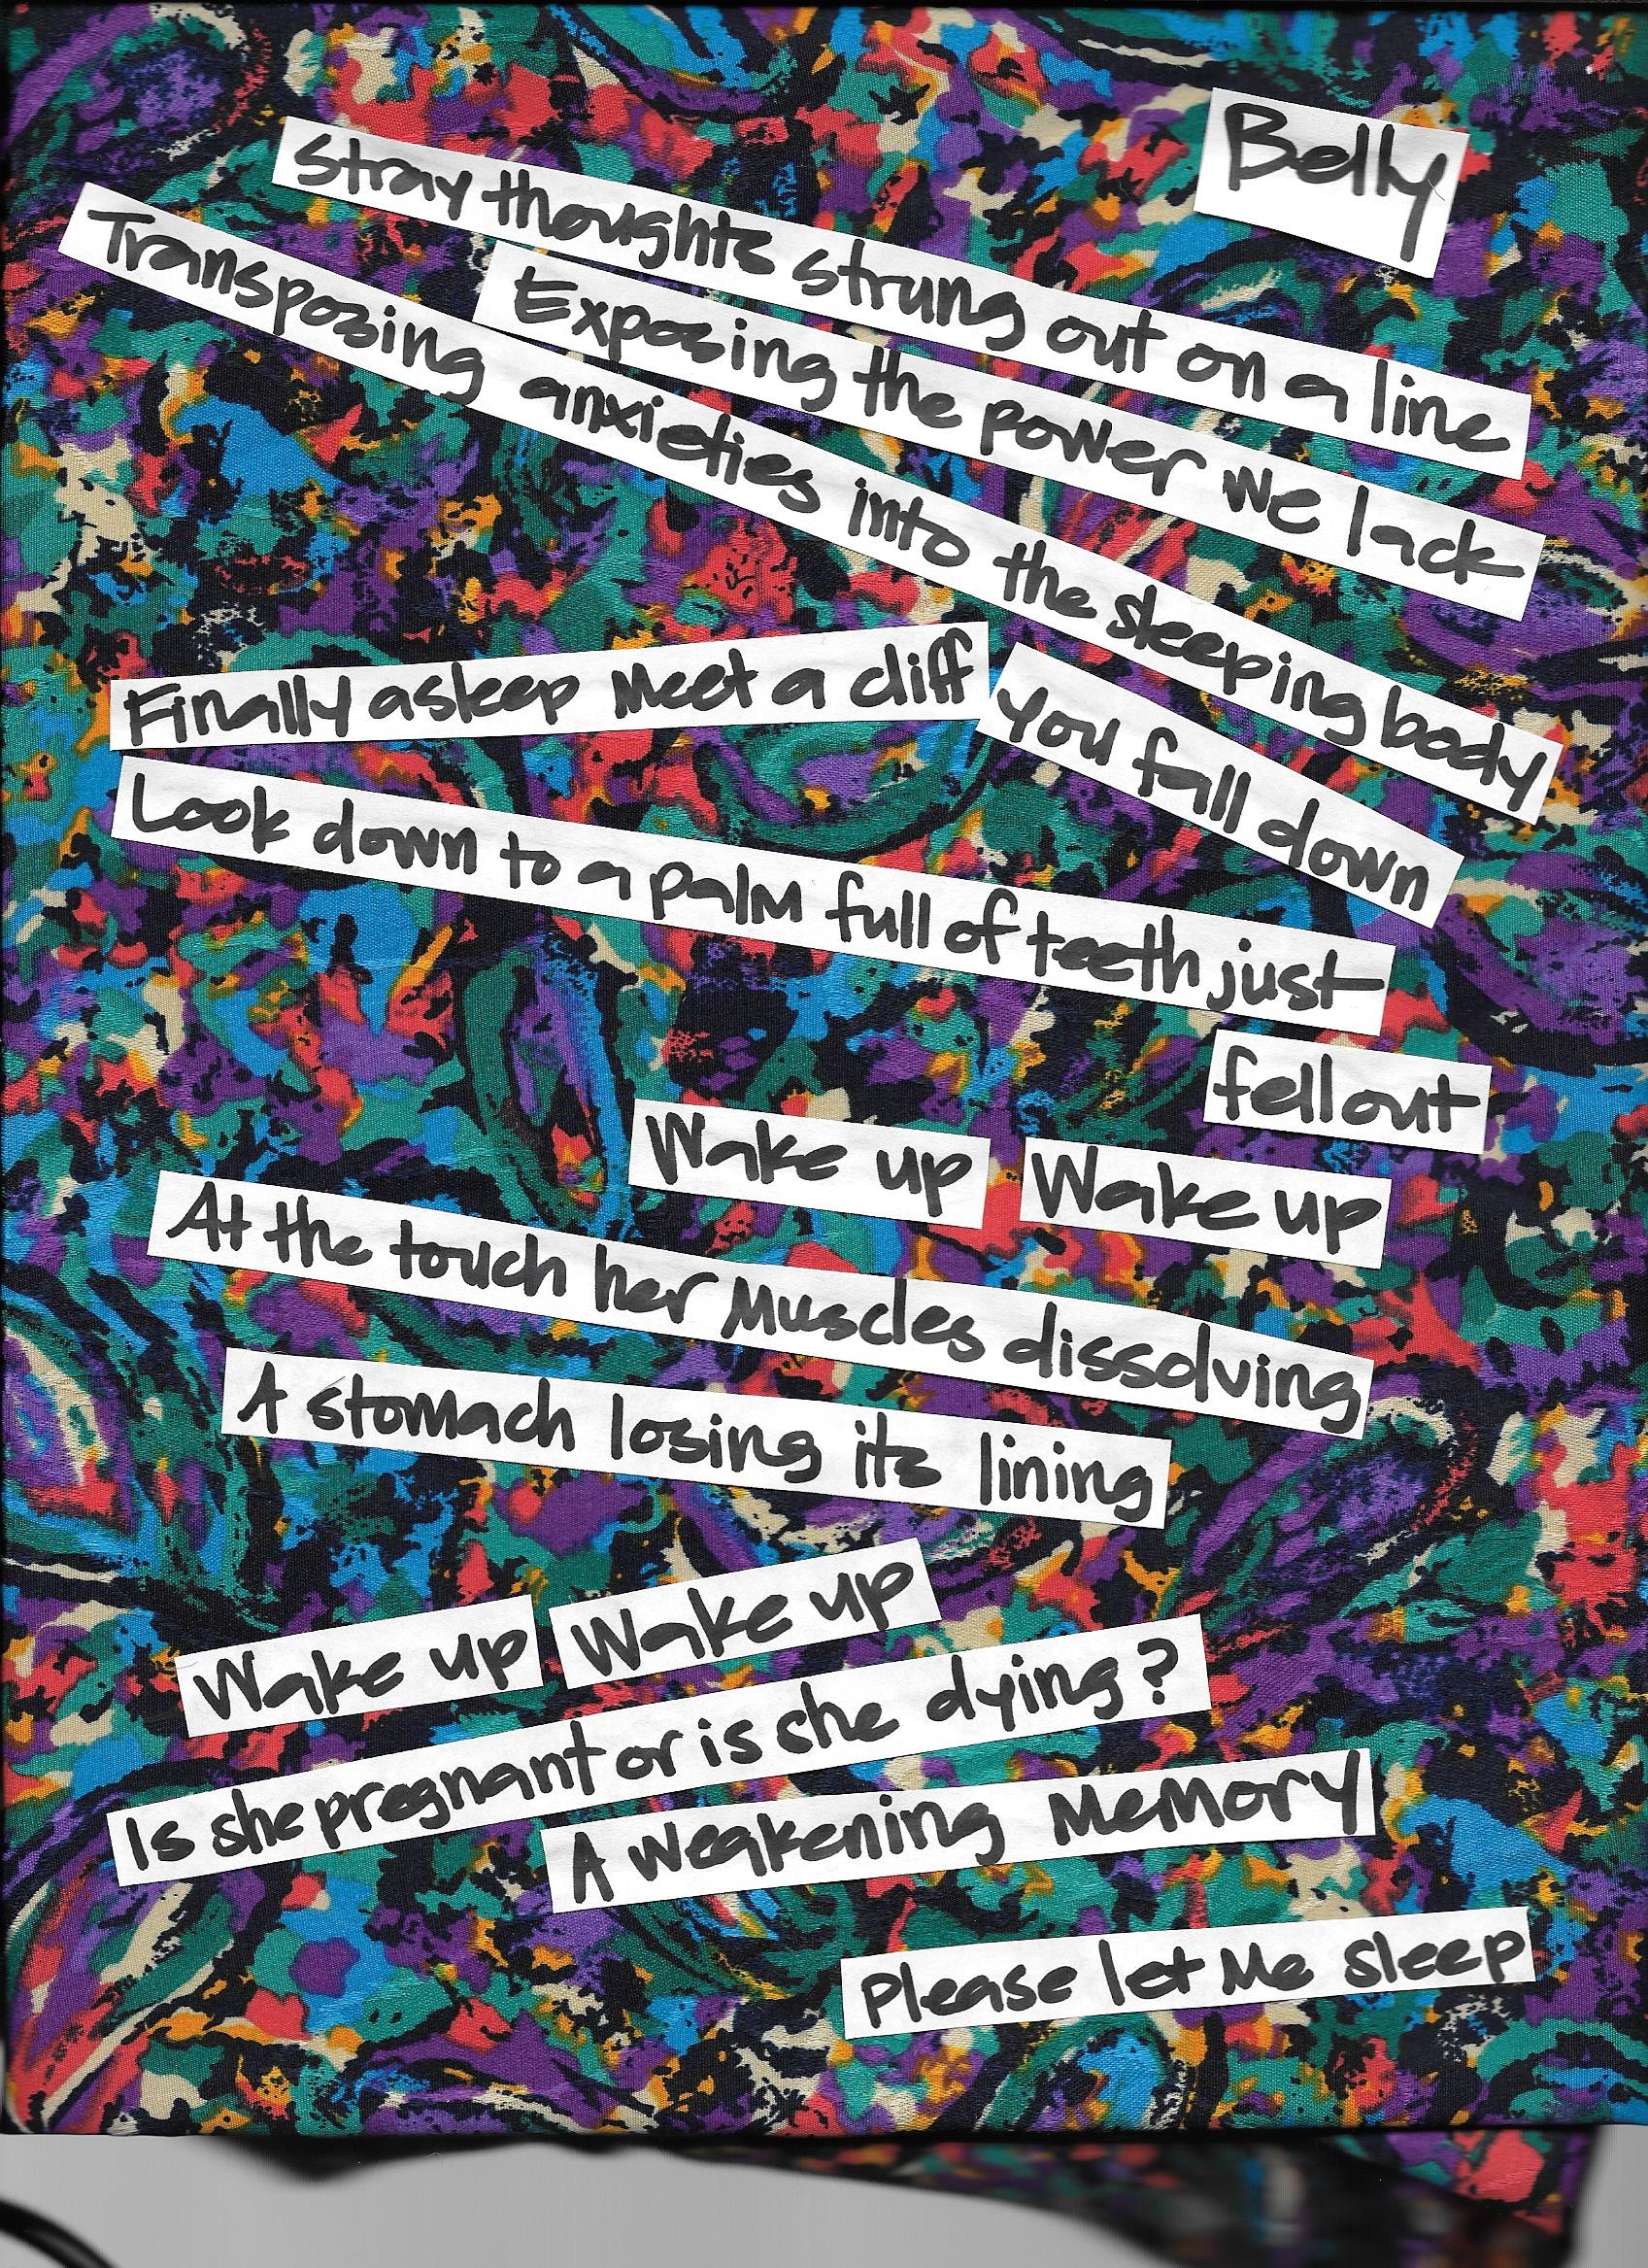 Belly
Stray thoughts strung out on a line
Exposing the power we lack
Transposing anxieties into the sleeping body
Finally asleep meet a cliff
You fall down
Look down to a palm full of teeth just
fell out
Wake up Wake up
At the touch her muscles dissolving
A stomach losing its lining
Wake up Wake up
Is she pregnant or is she dying?
A weakening memory
Please let me sleep